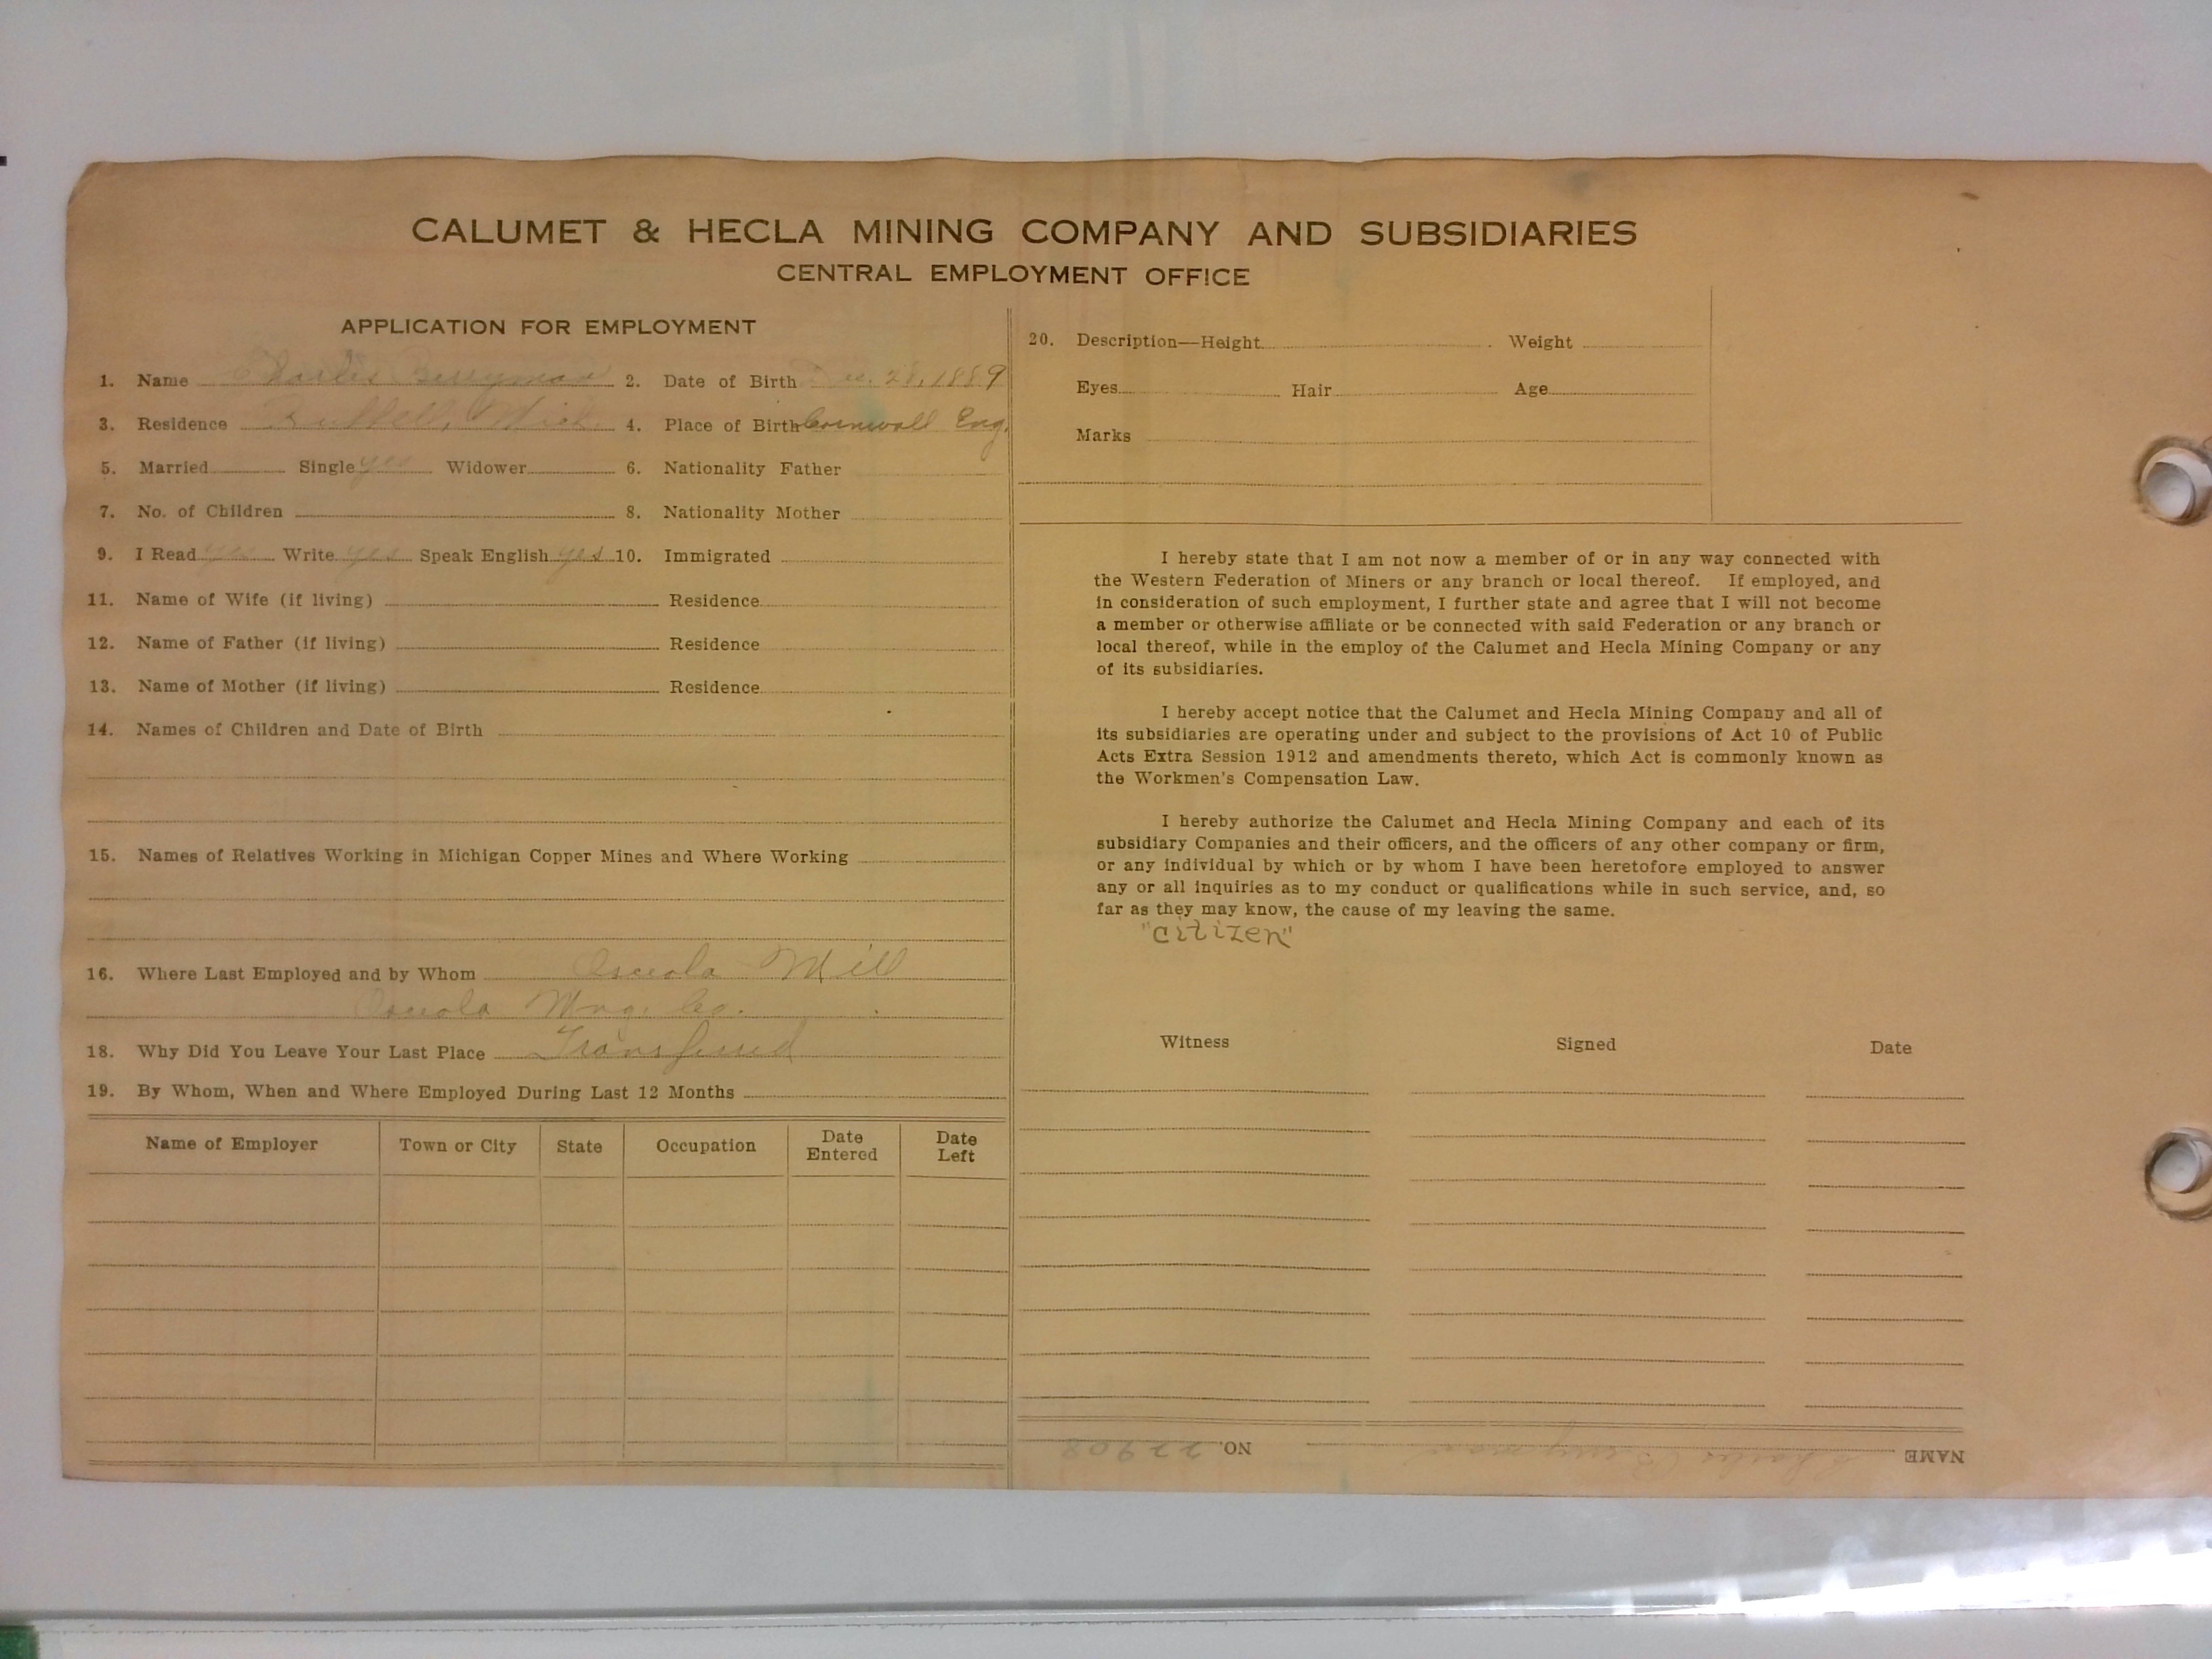 CALUMET & HECLA MINING COMPANY AND SUBSIDIARIES
CENTRAL EMPLOYMENT OFFICE
APPLICATION FOR EMPLOYMENT
1. Name Charles Berryman 2. Date of Birth Dec. 28, 1889
3. Residence Mich. 4. Place of Birth Cornwall Eng.
5. Married Single yes Widower 6. Nationality Father
7. No. of Children 8. Nationality Mother
9. I Read yes Write yes Speak English yes 10. Immigrated
11. Name of Wife (if living) Residence
12. Name of Father (if living) Residence
13. Name of Mother (if living) Residence
14. Names of Children and Date of Birth
15. Names of Relatives Working in Michigan Copper Mines and Where Working
16. Where Last Employed and by Whom Osceola Mill
Osceola Mng. Co.
18. Why Did You Leave Your Last Place Transferred
19. By Whom, When and Where Employed During Last 12 Months
Name of Employer Town or City State Occupation Date Entered Date Left
20. Description—Height Weight
Eyes Hair Age
Marks
I hereby state that I am not now a member of or in any way connected with
the Western Federation of Miners or any branch or local thereof. If employed, and
in consideration of such employment, I further state and agree that I will not become
a member or otherwise affiliate or be connected with said Federation or any branch or
local thereof, while in the employ of the Calumet and Hecla Mining Company or any
of its subsidiaries.
I hereby accept notice that the Calumet and Hecla Mining Company and all of
its subsidiaries are operating under and subject to the provisions of Act 10 of Public
Acts Extra Session 1912 and amendments thereto, which Act is commonly known as
the Workmen's Compensation Law.
I hereby authorize the Calumet and Hecla Mining Company and each of its
subsidiary Companies and their officers, and the officers of any other company or firm,
or any individual by which or by whom I have been heretofore employed to answer
any or all inquiries as to my conduct or qualifications while in such service, and, so
far as they may know, the cause of my leaving the same.
"citizen"
Witness Signed Date
NAME Charles Berryman NO. 22908